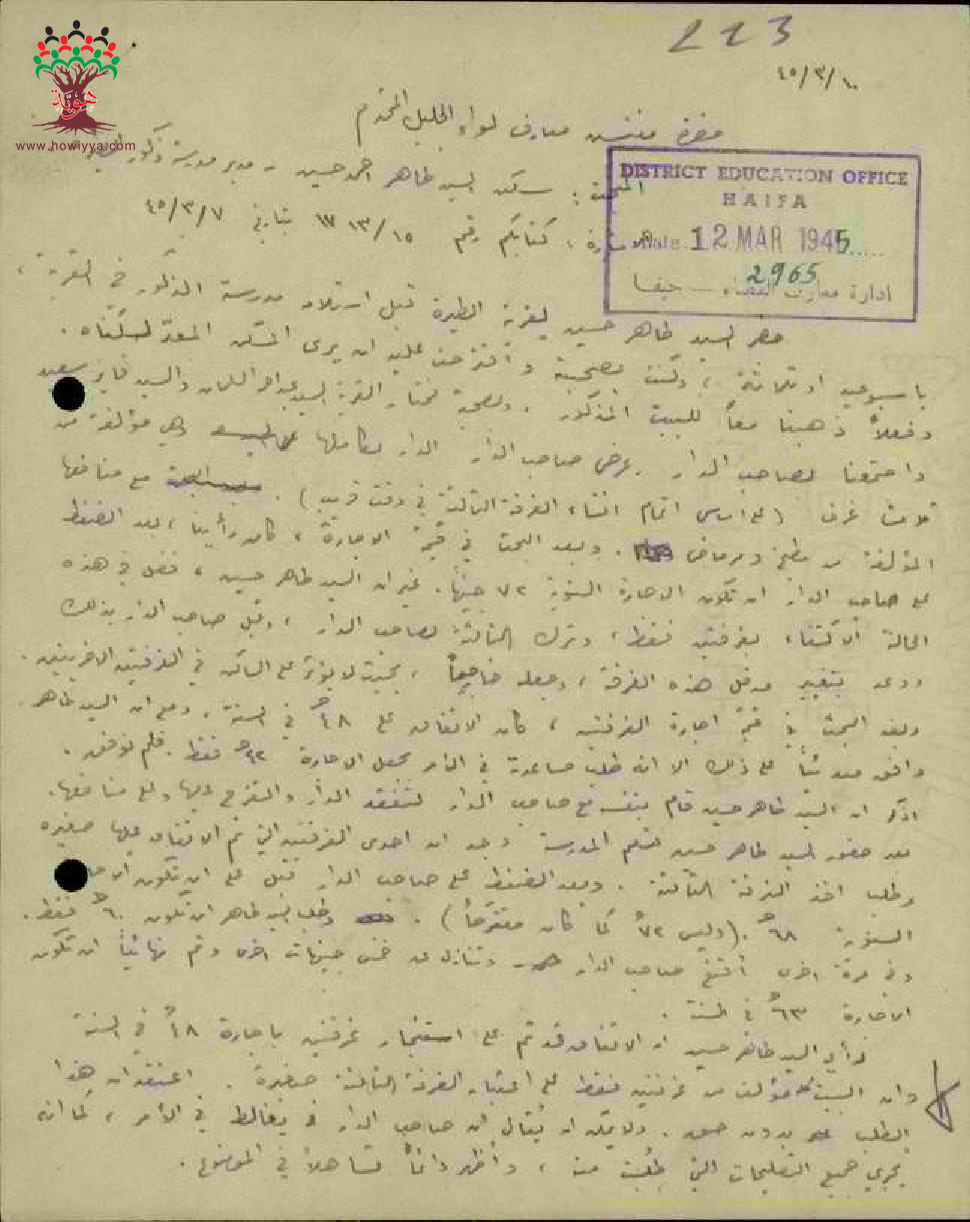 223
٤٥/٣/١٠
هوية
www.howiyya.com
حضرة مفتش معارف لواء الجليل المحترم
المبحث : سكن السيد طاهر احمد حسين - مدير مدرسة ذكور
DISTRICT EDUCATION OFFICE
HAIFA
Date 12 MAR 1945
2965
ادارة معارف القضاء — حيفا
الاشارة : كتابكم رقم ١٣/١٥ ١٧ بتاريخ ٤٥/٣/٧
حضر السيد طاهر حسين لقرية الطيرة قبل استلام مدرسة الذكور في القرية ،
باسبوعين او ثلاثة ، وكنت بصحبته واقترحت عليه ان يرى المسكن المعدّ لسكناه .
وفعلاً ذهبنا معاً للبيت المذكور . وبصحبة مختار القرية السيد عبدالله السلمان والسيد فايز سعيد
واجتمعنا بصاحب الدار . عرض صاحب الدار الدار بكاملها وهي مؤلفة من
ثلاث غرف (على اساس اتمام انشاء الغرفة الثالثة في وقت قريب) . مع منافعها
المؤلفة من مطبخ ومرحاض . وبعد البحث في قيمة الاجارة ، كان رأينا ، بعد الضغط
على صاحب الدار ان تكون الاجارة السنوية ٧٢ جنيهاً . غير ان السيد طاهر حسين ، فضل في هذه
الحالة الاكتفاء بغرفتين فقط ، وترك الثالثة لصاحب الدار ، وقبل صاحب الدار بذلك
ووعد بتغيير مدخل هذه الغرفة ، وجعله خارجياً ، بحيث لا يؤثر على الساكن في الغرفتين الاخريتين .
وبعد البحث في قيمة اجارة الغرفتين ، كان الاتفاق على ٤٨ج في السنة . ومع ان السيد طاهر
وافق مبدئياً على ذلك الا انه طلب مساعدته في الامر بجعل الاجارة فقط . فلم نوفق .
اذكر ان السيد طاهر حسين قام بنفسه مع صاحب الدار لتفقد الدار والتفرج عليها وعلى منافعها .
بعد حضور السيد طاهر حسين لتسلم المدرسة وجد ان احدى الغرفتين التي تم الاتفاق عليها صغيرة
وطلب اخذ الغرفة الثالثة . وبعد الضغط على صاحب الدار قبل على ان تكون
السنوية ٦٨ج . (وليس ٧٢ج كما كان مقترحاً) . وطلب السيد طاهر ان تكون ٦٠ج فقط .
وفي مرة اخرى اقتنع صاحب الدار وتنازل عن خمس جنيهات اخرى وتم نهائياً ان تكون
الاجارة ٦٣ج في السنة .
فرأي السيد طاهر حسين ان الاتفاق قد تم على استئجار غرفتين باجارة ٤٨ج في السنة
وان البيت مؤلف من غرفتين فقط على اعتبار الغرفة الثالثة صغيرة . اعتقد ان هذا
الطلب بدون حق . ولا يمكن ان يُقال ان صاحب الدار يغالط في الأمر ، كما انه
يجري جميع التصليحات التي طُلبت منه ، وأظهر دائماً تساهلاً في الموضوع .